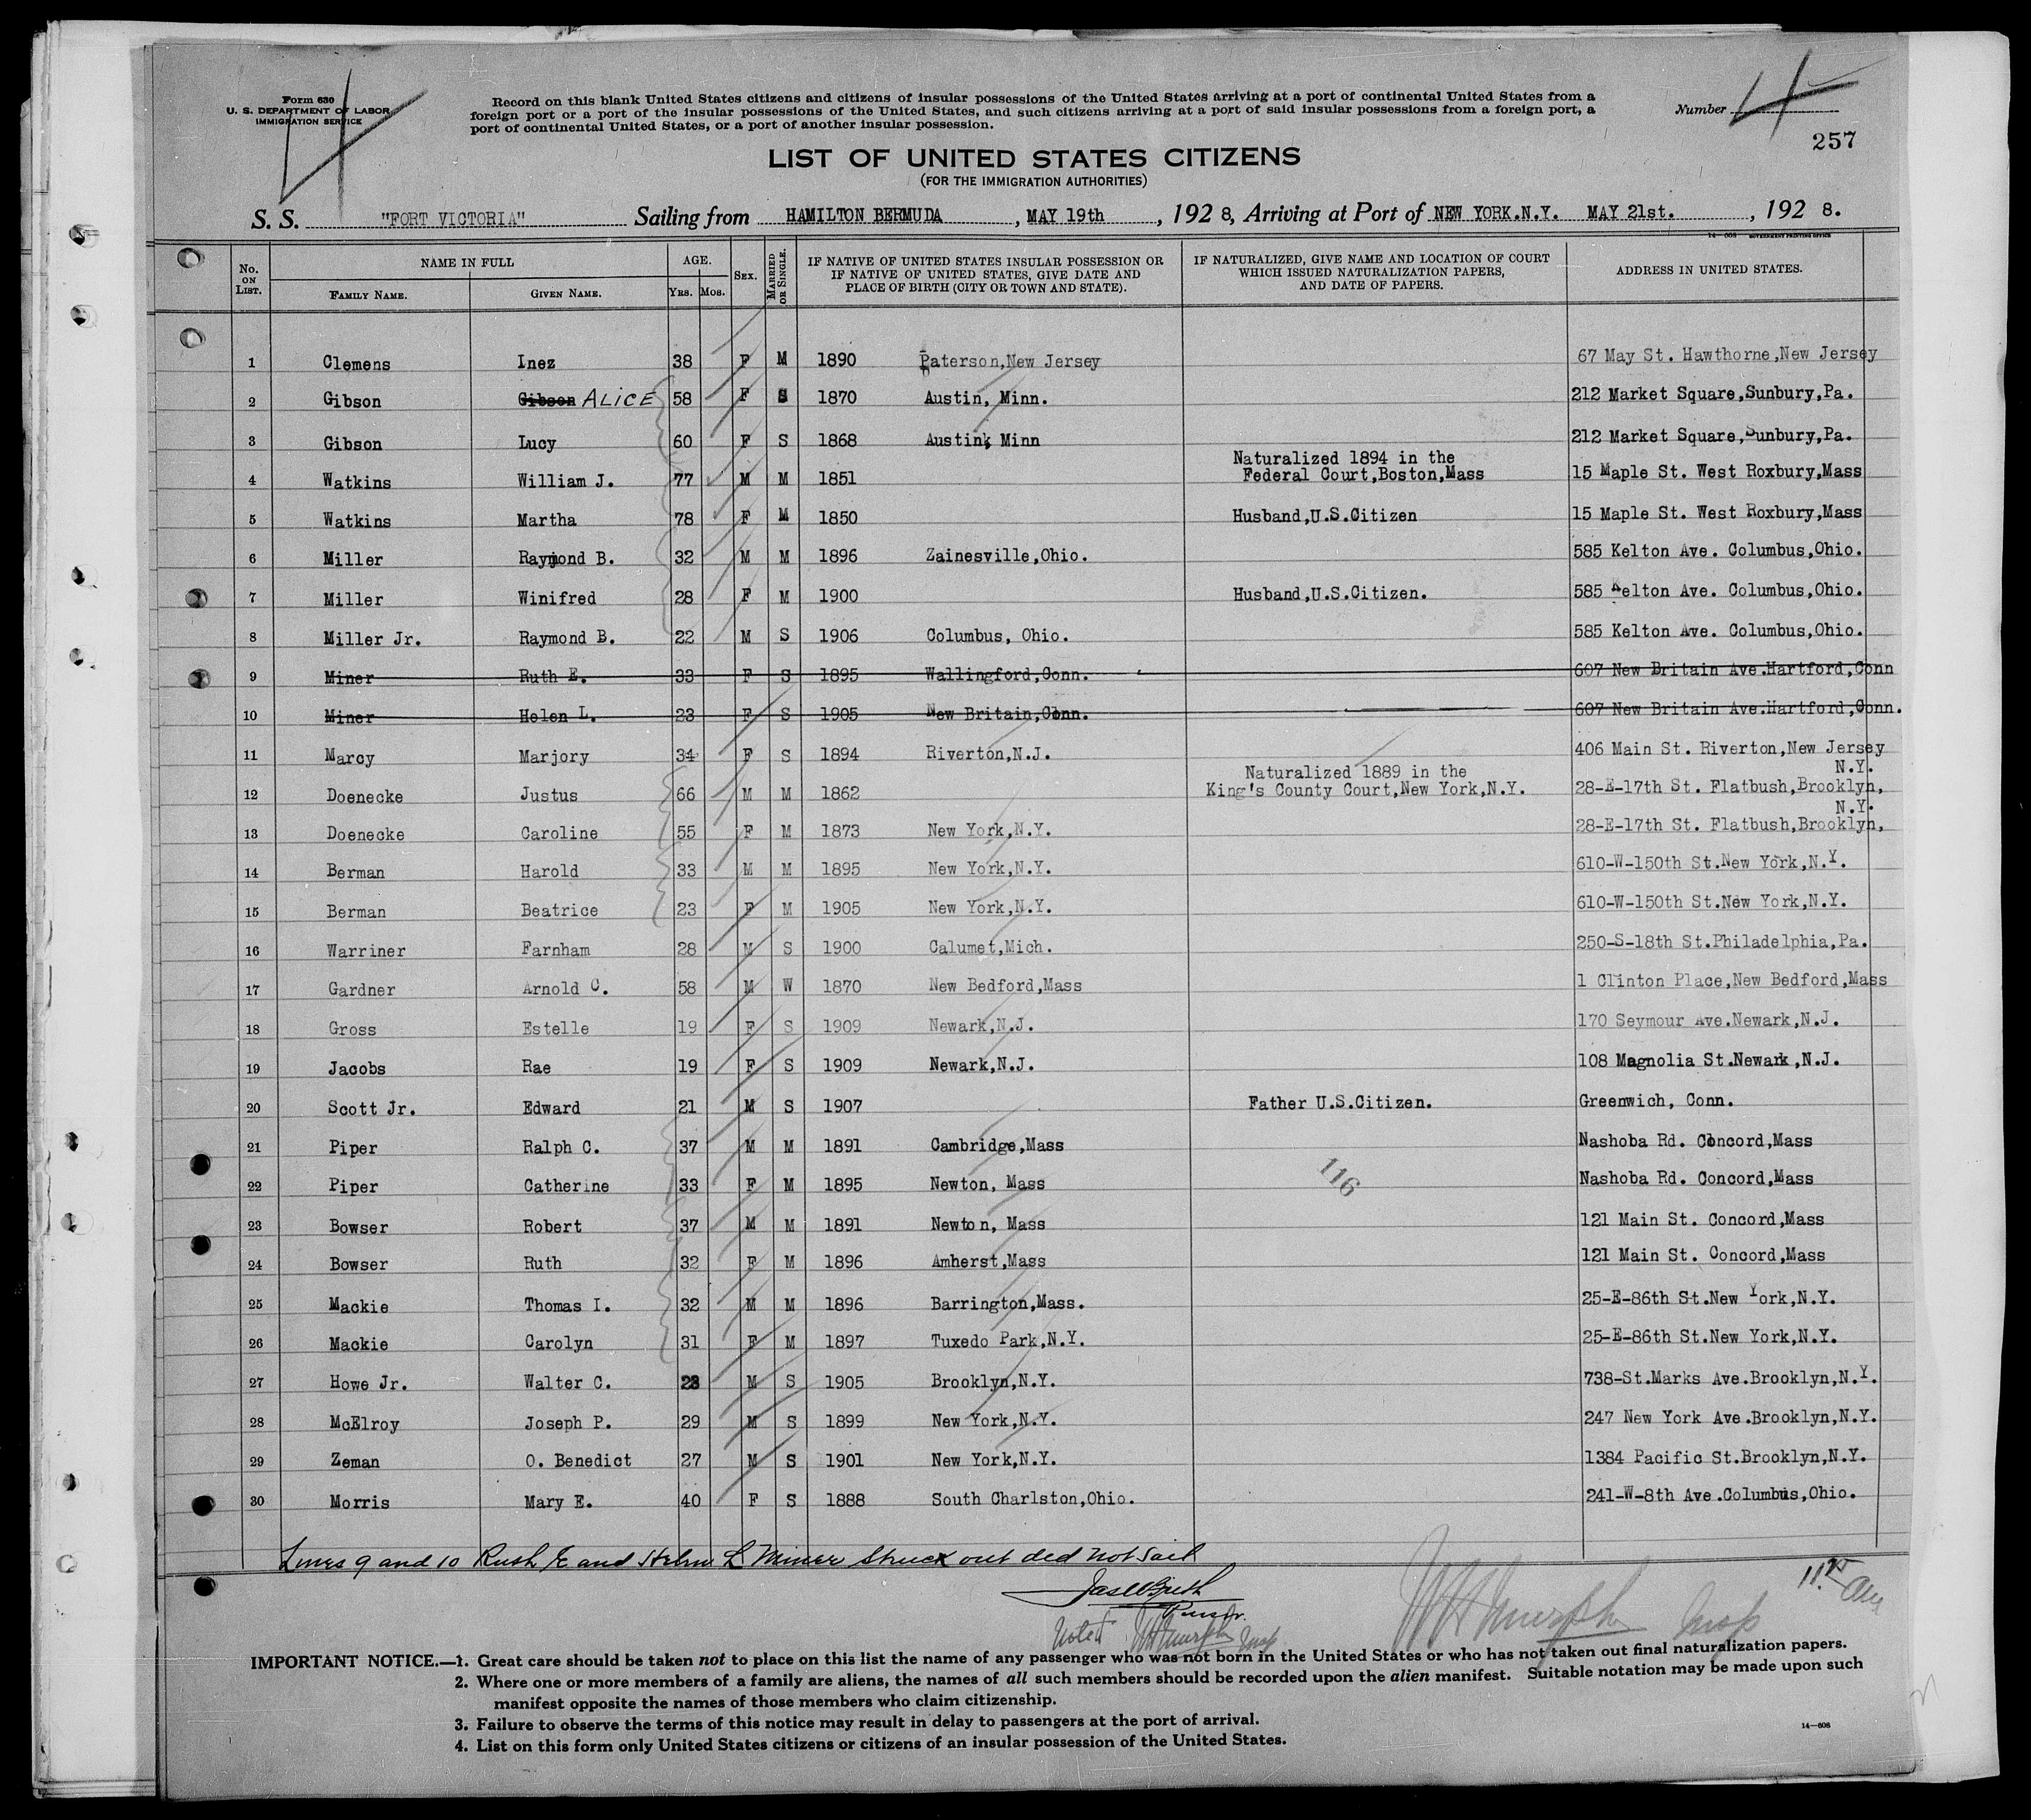 Form 630
U. S. DEPARTMENT OF LABOR
IMMIGRATION SERVICE
Record on this blank United States citizens and citizens of insular possessions of the United States arriving at a port of continental United States from a
foreign port or a port of the insular possessions of the United States, and such citizens arriving at a port of said insular possessions from a foreign port, a
port of continental United States, or a port of another insular possession.
Number 4
4
257
LIST OF UNITED STATES CITIZENS
(FOR THE IMMIGRATION AUTHORITIES)
S. S. "FORT VICTORIA" Sailing from HAMILTON BERMUDA, MAY 19th, 192 8, Arriving at Port of NEW YORK.N.Y. MAY 21st., 192 8.
14—608 GOVERNMENT PRINTING OFFICE
No. ON LIST. NAME IN FULL FAMILY NAME. GIVEN NAME. AGE. YRS. MOS. SEX. MARRIED OR SINGLE. IF NATIVE OF UNITED STATES INSULAR POSSESSION OR IF NATIVE OF UNITED STATES, GIVE DATE AND PLACE OF BIRTH (CITY OR TOWN AND STATE). IF NATURALIZED, GIVE NAME AND LOCATION OF COURT WHICH ISSUED NATURALIZATION PAPERS, AND DATE OF PAPERS. ADDRESS IN UNITED STATES.
1 Clemens Inez 38 F M 1890 Paterson,New Jersey 67 May St. Hawthorne,New Jersey
2 Gibson Gibson ALICE 58 F S 1870 Austin, Minn. 212 Market Square,Sunbury,Pa.
3 Gibson Lucy 60 F S 1868 Austin, Minn 212 Market Square,Sunbury,Pa.
4 Watkins William J. 77 M M 1851 Naturalized 1894 in the Federal Court,Boston,Mass 15 Maple St. West Roxbury,Mass
5 Watkins Martha 78 F M 1850 Husband,U.S.Citizen 15 Maple St. West Roxbury,Mass
6 Miller Raymond B. 32 M M 1896 Zainesville,Ohio. 585 Kelton Ave. Columbus,Ohio.
7 Miller Winifred 28 F M 1900 Husband,U.S.Citizen. 585 Kelton Ave. Columbus,Ohio.
8 Miller Jr. Raymond B. 22 M S 1906 Columbus, Ohio. 585 Kelton Ave. Columbus,Ohio.
9 Miner Ruth E. 33 F S 1895 Wallingford,Conn. 607 New Britain Ave.Hartford,Conn
10 Miner Helen L. 23 F S 1905 New Britain,Conn. 607 New Britain Ave.Hartford,Conn.
11 Marcy Marjory 34 F S 1894 Riverton,N.J. 406 Main St. Riverton,New Jersey
12 Doenecke Justus 66 M M 1862 Naturalized 1889 in the King's County Court,New York,N.Y. 28-E-17th St. Flatbush,Brooklyn, N.Y.
13 Doenecke Caroline 55 F M 1873 New York,N.Y. 28-E-17th St. Flatbush,Brooklyn, N.Y.
14 Berman Harold 33 M M 1895 New York,N.Y. 610-W-150th St.New York,N.Y.
15 Berman Beatrice 23 F M 1905 New York,N.Y. 610-W-150th St.New York,N.Y.
16 Warriner Farnham 28 M S 1900 Calumet,Mich. 250-S-18th St.Philadelphia,Pa.
17 Gardner Arnold C. 58 M W 1870 New Bedford,Mass 1 Clinton Place,New Bedford,Mass
18 Gross Estelle 19 F S 1909 Newark,N.J. 170 Seymour Ave.Newark,N.J.
19 Jacobs Rae 19 F S 1909 Newark,N.J. 108 Magnolia St.Newark,N.J.
20 Scott Jr. Edward 21 M S 1907 Father U.S.Citizen. Greenwich, Conn.
21 Piper Ralph C. 37 M M 1891 Cambridge,Mass Nashoba Rd. Concord,Mass
116
22 Piper Catherine 33 F M 1895 Newton, Mass Nashoba Rd. Concord,Mass
23 Bowser Robert 37 M M 1891 Newton, Mass 121 Main St. Concord,Mass
24 Bowser Ruth 32 F M 1896 Amherst,Mass 121 Main St. Concord,Mass
25 Mackie Thomas I. 32 M M 1896 Barrington,Mass. 25-E-86th St.New York,N.Y.
26 Mackie Carolyn 31 F M 1897 Tuxedo Park,N.Y. 25-E-86th St.New York,N.Y.
27 Howe Jr. Walter C. 23 M S 1905 Brooklyn,N.Y. 738-St.Marks Ave.Brooklyn,N.Y.
28 McElroy Joseph P. 29 M S 1899 New York,N.Y. 247 New York Ave.Brooklyn,N.Y.
29 Zeman O. Benedict 27 M S 1901 New York,N.Y. 1384 Pacific St.Brooklyn,N.Y.
30 Morris Mary E. 40 F S 1888 South Charlston,Ohio. 241-W-8th Ave.Columbus,Ohio.
Lines 9 and 10 Ruth E and Helen L Miner Struck out did not sail
Purser.
Noted W H Murphy Insp
W H Murphy Insp
IMPORTANT NOTICE.—1. Great care should be taken not to place on this list the name of any passenger who was not born in the United States or who has not taken out final naturalization papers.
2. Where one or more members of a family are aliens, the names of all such members should be recorded upon the alien manifest. Suitable notation may be made upon such
manifest opposite the names of those members who claim citizenship.
3. Failure to observe the terms of this notice may result in delay to passengers at the port of arrival.
4. List on this form only United States citizens or citizens of an insular possession of the United States.
14—608